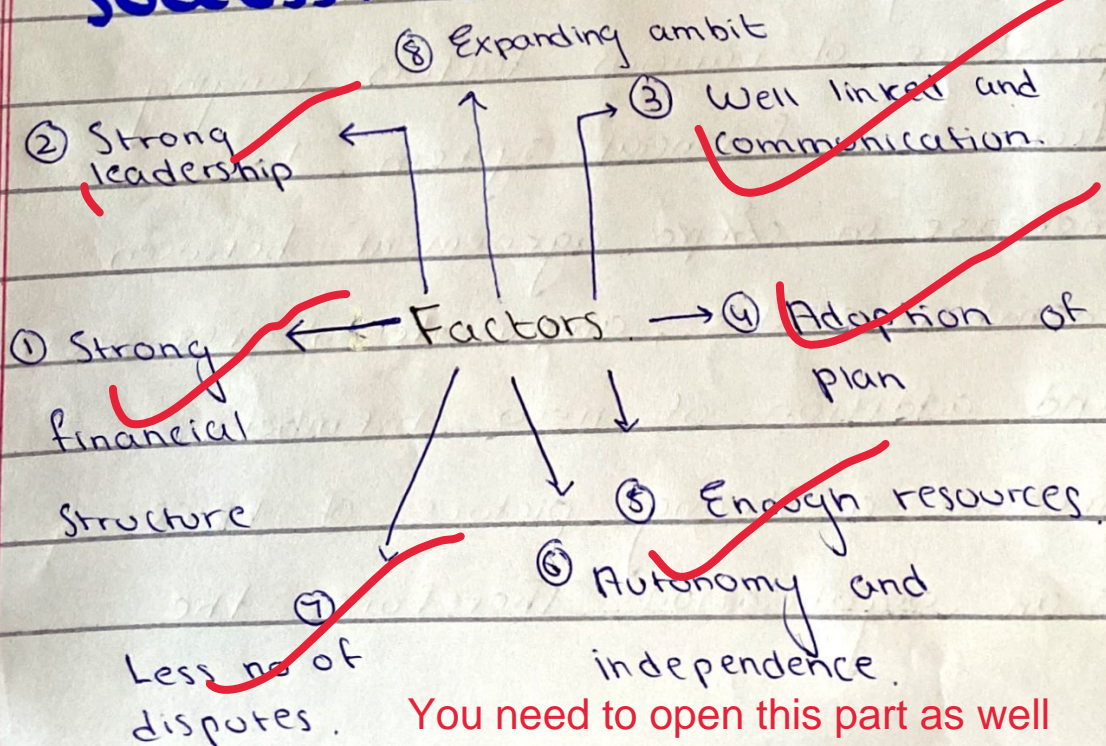 ⑧ Expanding ambit
② Strong
leadership
③ Well linked and
communication.
① Strong
financial
structure
Factors.
④ Adoption of
plan
⑤ Enough resources.
⑥ Autonomy and
independence.
⑦
Less no of
disputes.
You need to open this part as well